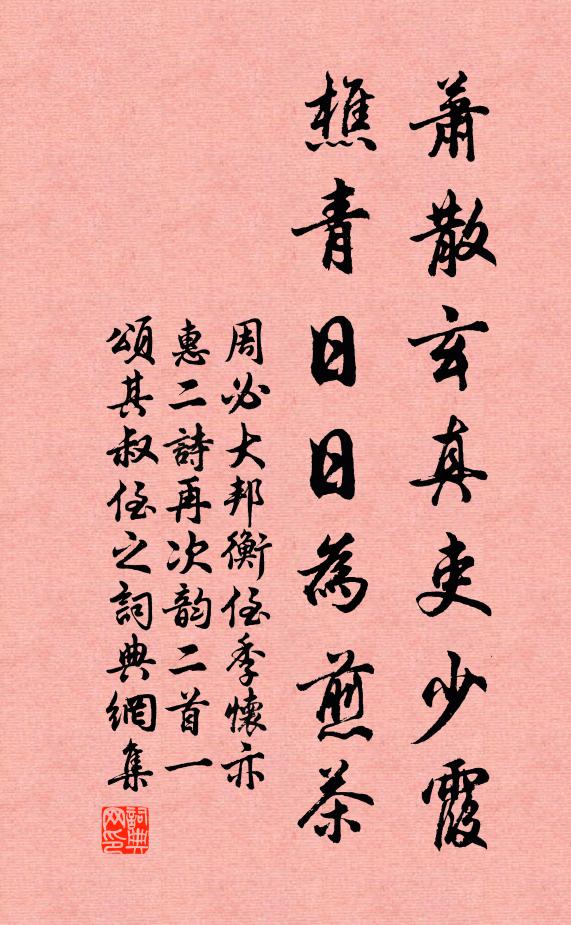 蕭散玄真吏少霞
樵青日日為煎茶
周必大邦衡侄季懷亦
惠二詩再次韵二首一
頌其叔侄之詞典網集
詞典网印